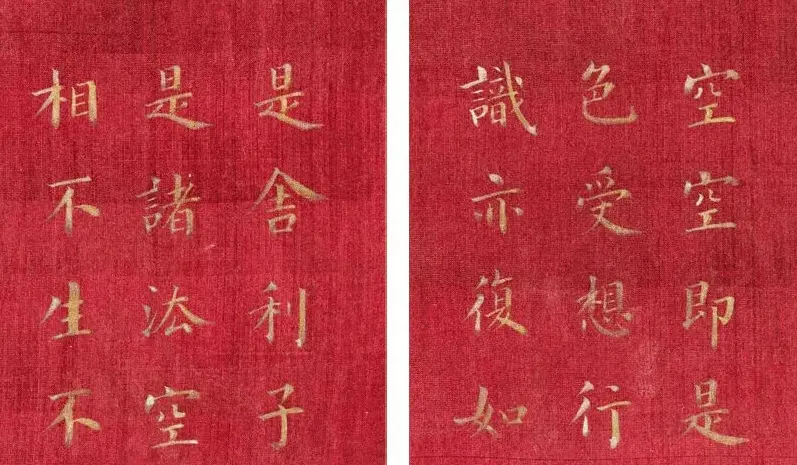 空空即是
色受想行
識亦復如
是舍利子
是諸法空
相不生不